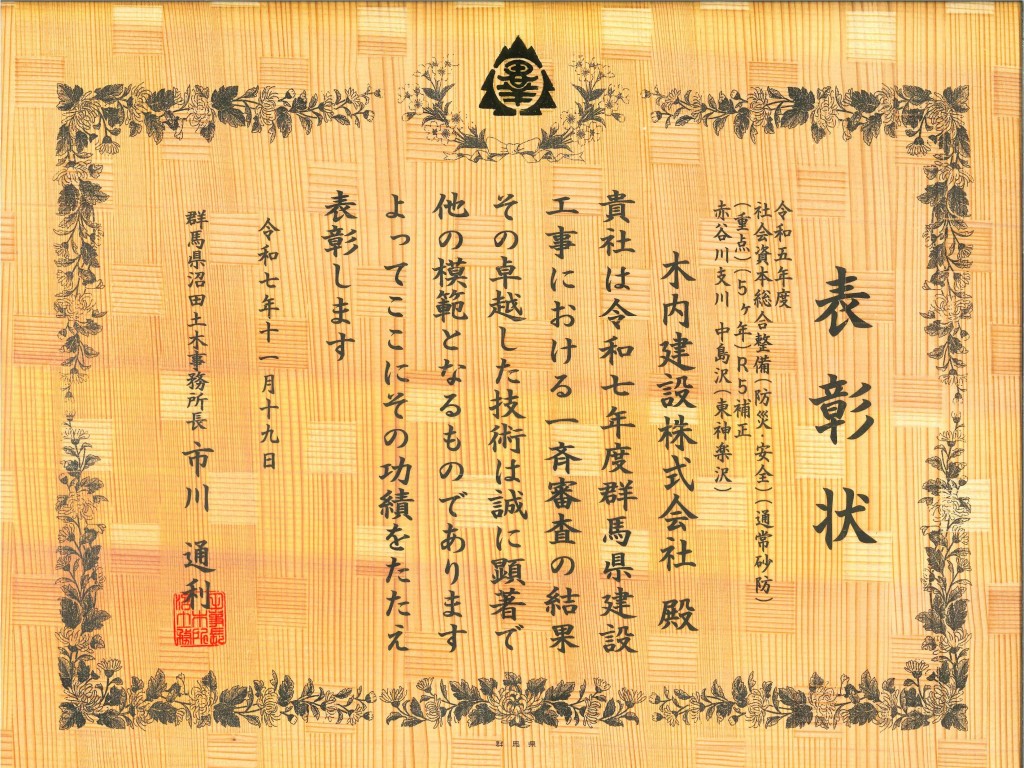 表彰状
令和五年度
社会資本総合整備(防災・安全)(通常砂防)
(重点)(5ヶ年)R5補正
赤谷川支川 中島沢(東神楽沢)
木内建設株式会社 殿
貴社は令和七年度群馬県建設
工事における一斉審査の結果
その卓越した技術は誠に顕著で
他の模範となるものであります
よってここにその功績をたたえ
表彰します
令和七年十一月十九日
群馬県沼田土木事務所長 市川 通利
群馬県